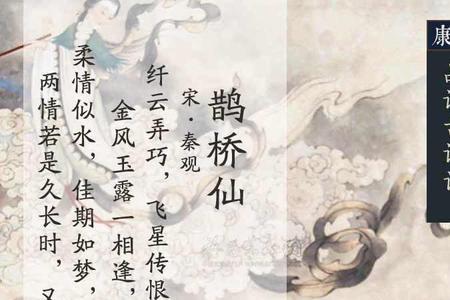 康
鹊桥仙
宋·秦观
纤云弄巧，飞星传恨
金风玉露一相逢，
柔情似水，佳期如梦，
两情若是久长时，又